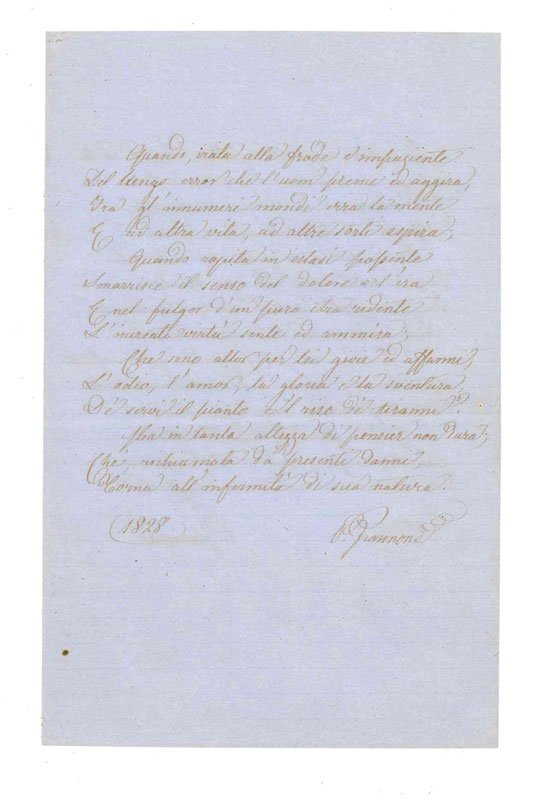 Quando, irata alla frode e impaziente
Del lungo error che l'uom preme ed aggira,
Fra gl'innumeri mondi erra la mente
E ad altra vita, ad altre sorti aspira;
Quando rapita in estasi possente
Smarrisce il senso del dolore e l'ira
E nel fulgor d'un puro etra ridente
L'increata virtù sente ed ammira;
Che sono allor per lei gioie ed affanni,
L'odio, l'amor, la gloria e la sventura,
De' servi il pianto e il riso de' tiranni?
Ma in tanta altezza di pensier non dura;
Ché, richiamata da' presenti danni,
Torna all'infermità di sua natura.
(1828)
P. Giannone